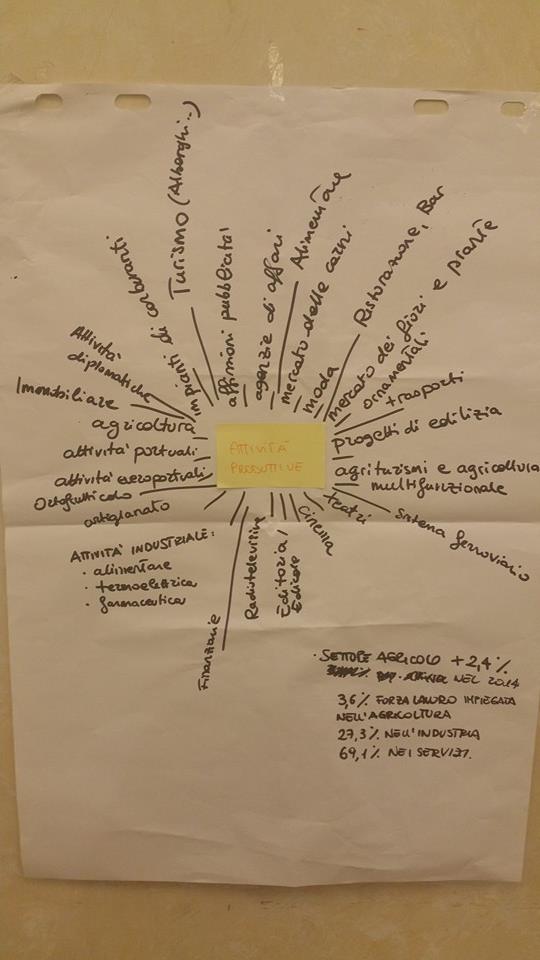 ATTIVITÀ
PRODUTTIVE
Attività
diplomatiche
impianti di carburanti
Turismo (Alberghi...)
affissioni pubblicità
agenzie di affari
Alimentare
mercato delle carni
moda
Ristorazione, Bar
mercato dei fiori e piante
ornamentali
trasporti
progetti di edilizia
agriturismi e agricoltura
multifunzionale
Sistema ferroviario
teatri
Cinema
Editoria/
Edicole
Radiotelevisive
Finanziarie
Immobiliare
agricoltura
attività portuali
attività aeroportuali
Ortofrutticolo
artigianato
ATTIVITÀ INDUSTRIALE:
· alimentare
· termoelettrica
· farmaceutica
· SETTORE AGRICOLO +2,4%
NEL 2014
3,6% FORZA LAVORO IMPIEGATA
NELL'AGRICOLTURA
27,3% NELL'INDUSTRIA
69,1% NEI SERVIZI.